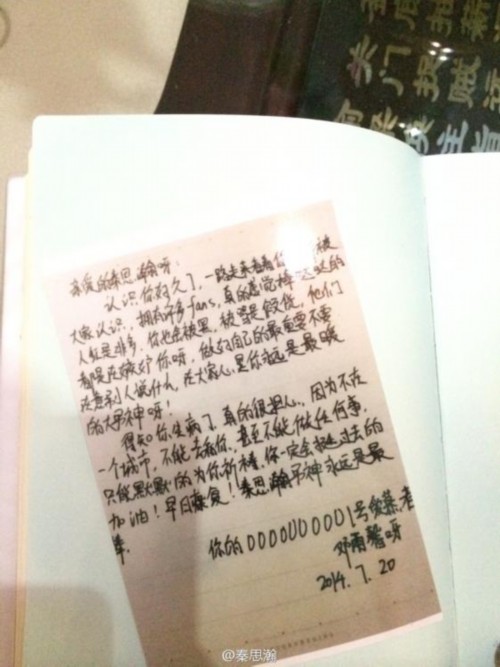 亲爱的秦思瀚呀:
认识你好久了,一路走来看着你被
大家认识,拥有许多fans,真的感觉棒棒的
人红是非多,你也会被黑,被骂是假货,他们
都是在嫉妒你呀,做好自己的最重要不要
在意别人说什么,在大家心里你永远是最暖
的大男神呀!
得知你生病了,真的很担心,因为不在
一个城市,不能去看你,甚至不能做任何事,
只能默默的为你祈祷,你一定会挺过去的
加油!早日康复!秦思瀚男神永远是最
棒.
你的0000000001号爱慕者
邓雨馨呀
2014.7.20
关门投贼
@秦思瀚